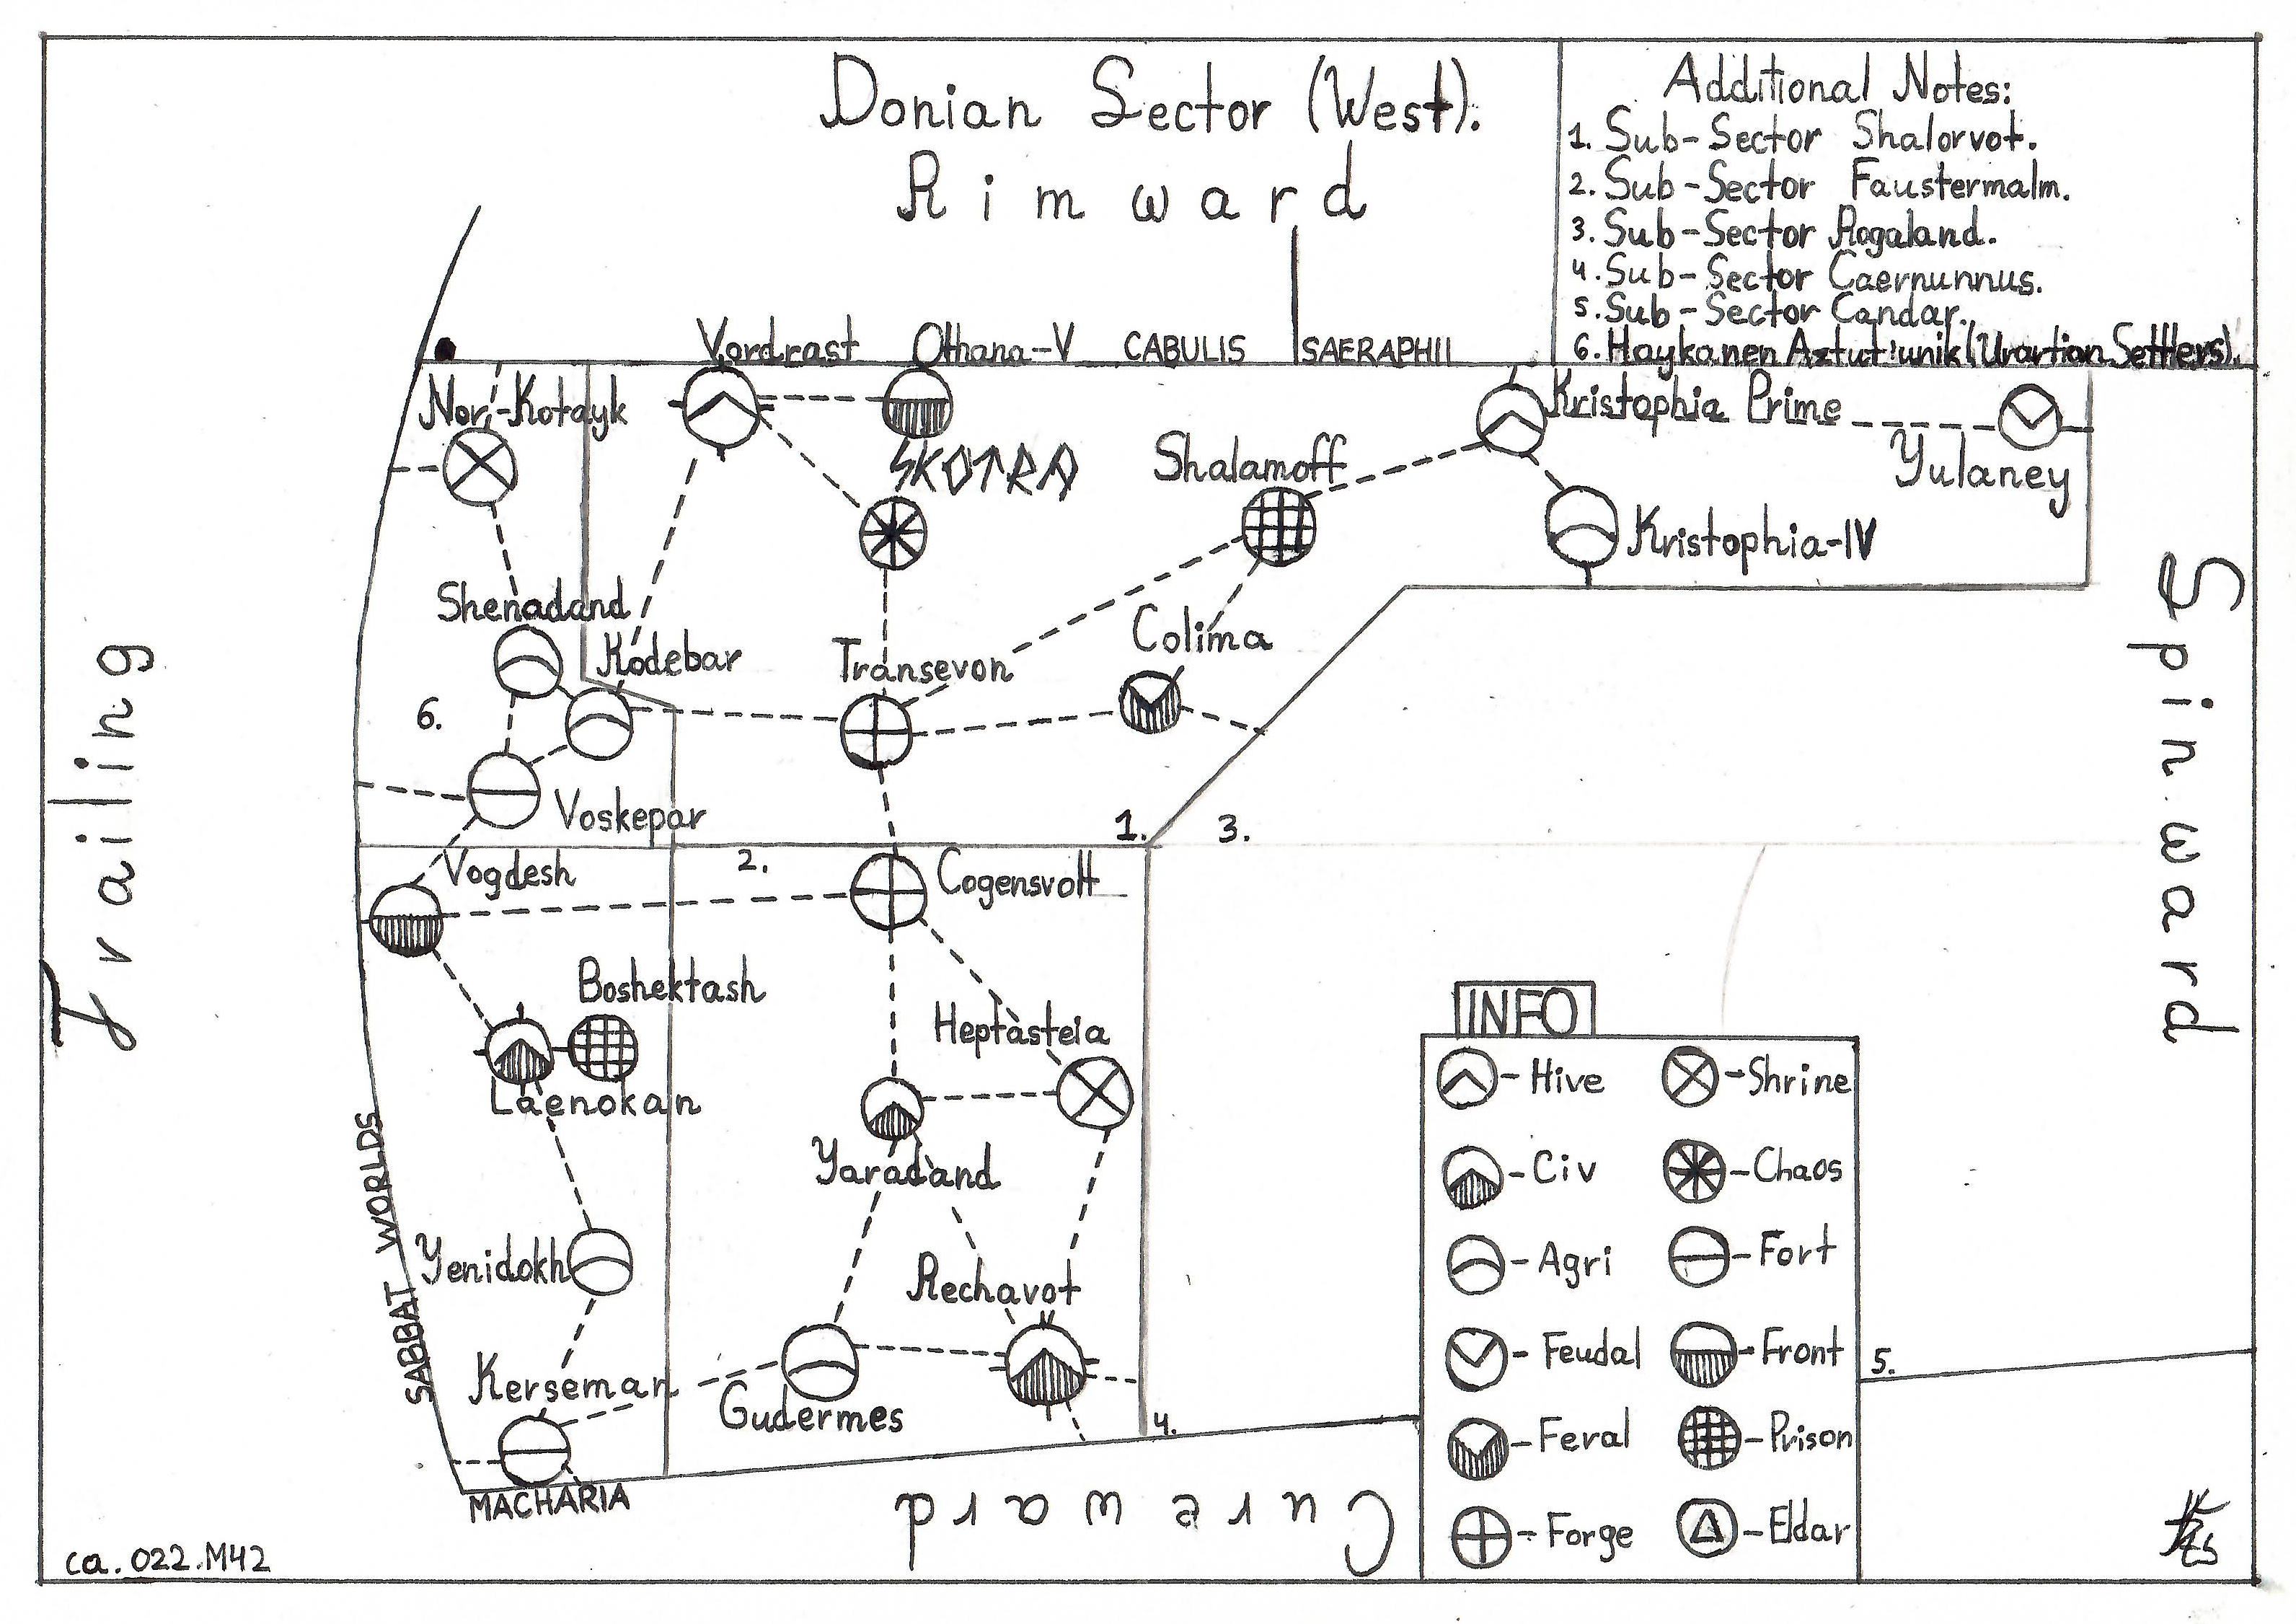 Donian Sector (West).
Rimward
Additional Notes:
1. Sub-Sector Shalorvot.
2. Sub-Sector Faustermalm.
3. Sub-Sector Rogaland.
4. Sub-Sector Caernunnus.
5. Sub-Sector Candar.
6. Haykanen Aztut'unik (Urartian Settlers).
Vordrast
Othana-V
CABULIS
SAERAPHII
Nor-Kotayk
Kristophia Prime
Yulaney
SKOTRA
Shalamoff
Kristophia-IV
Shenadand
Kodebar
Transevon
Colima
6.
Voskepar
1.
3.
Trailing
Spinward
Vogdesh
2.
Cogensvolt
Boshektash
Heptasteia
Laenokan
Yaradand
SABBAT WORLDS
Yenidokh
Rechavot
Kerseman
Gudermes
4.
5.
MACHARIA
Coreward
INFO
- Hive
- Shrine
- Civ
- Chaos
- Agri
- Fort
- Feudal
- Front
- Feral
- Prison
- Forge
- Eldar
ca. 022.M42